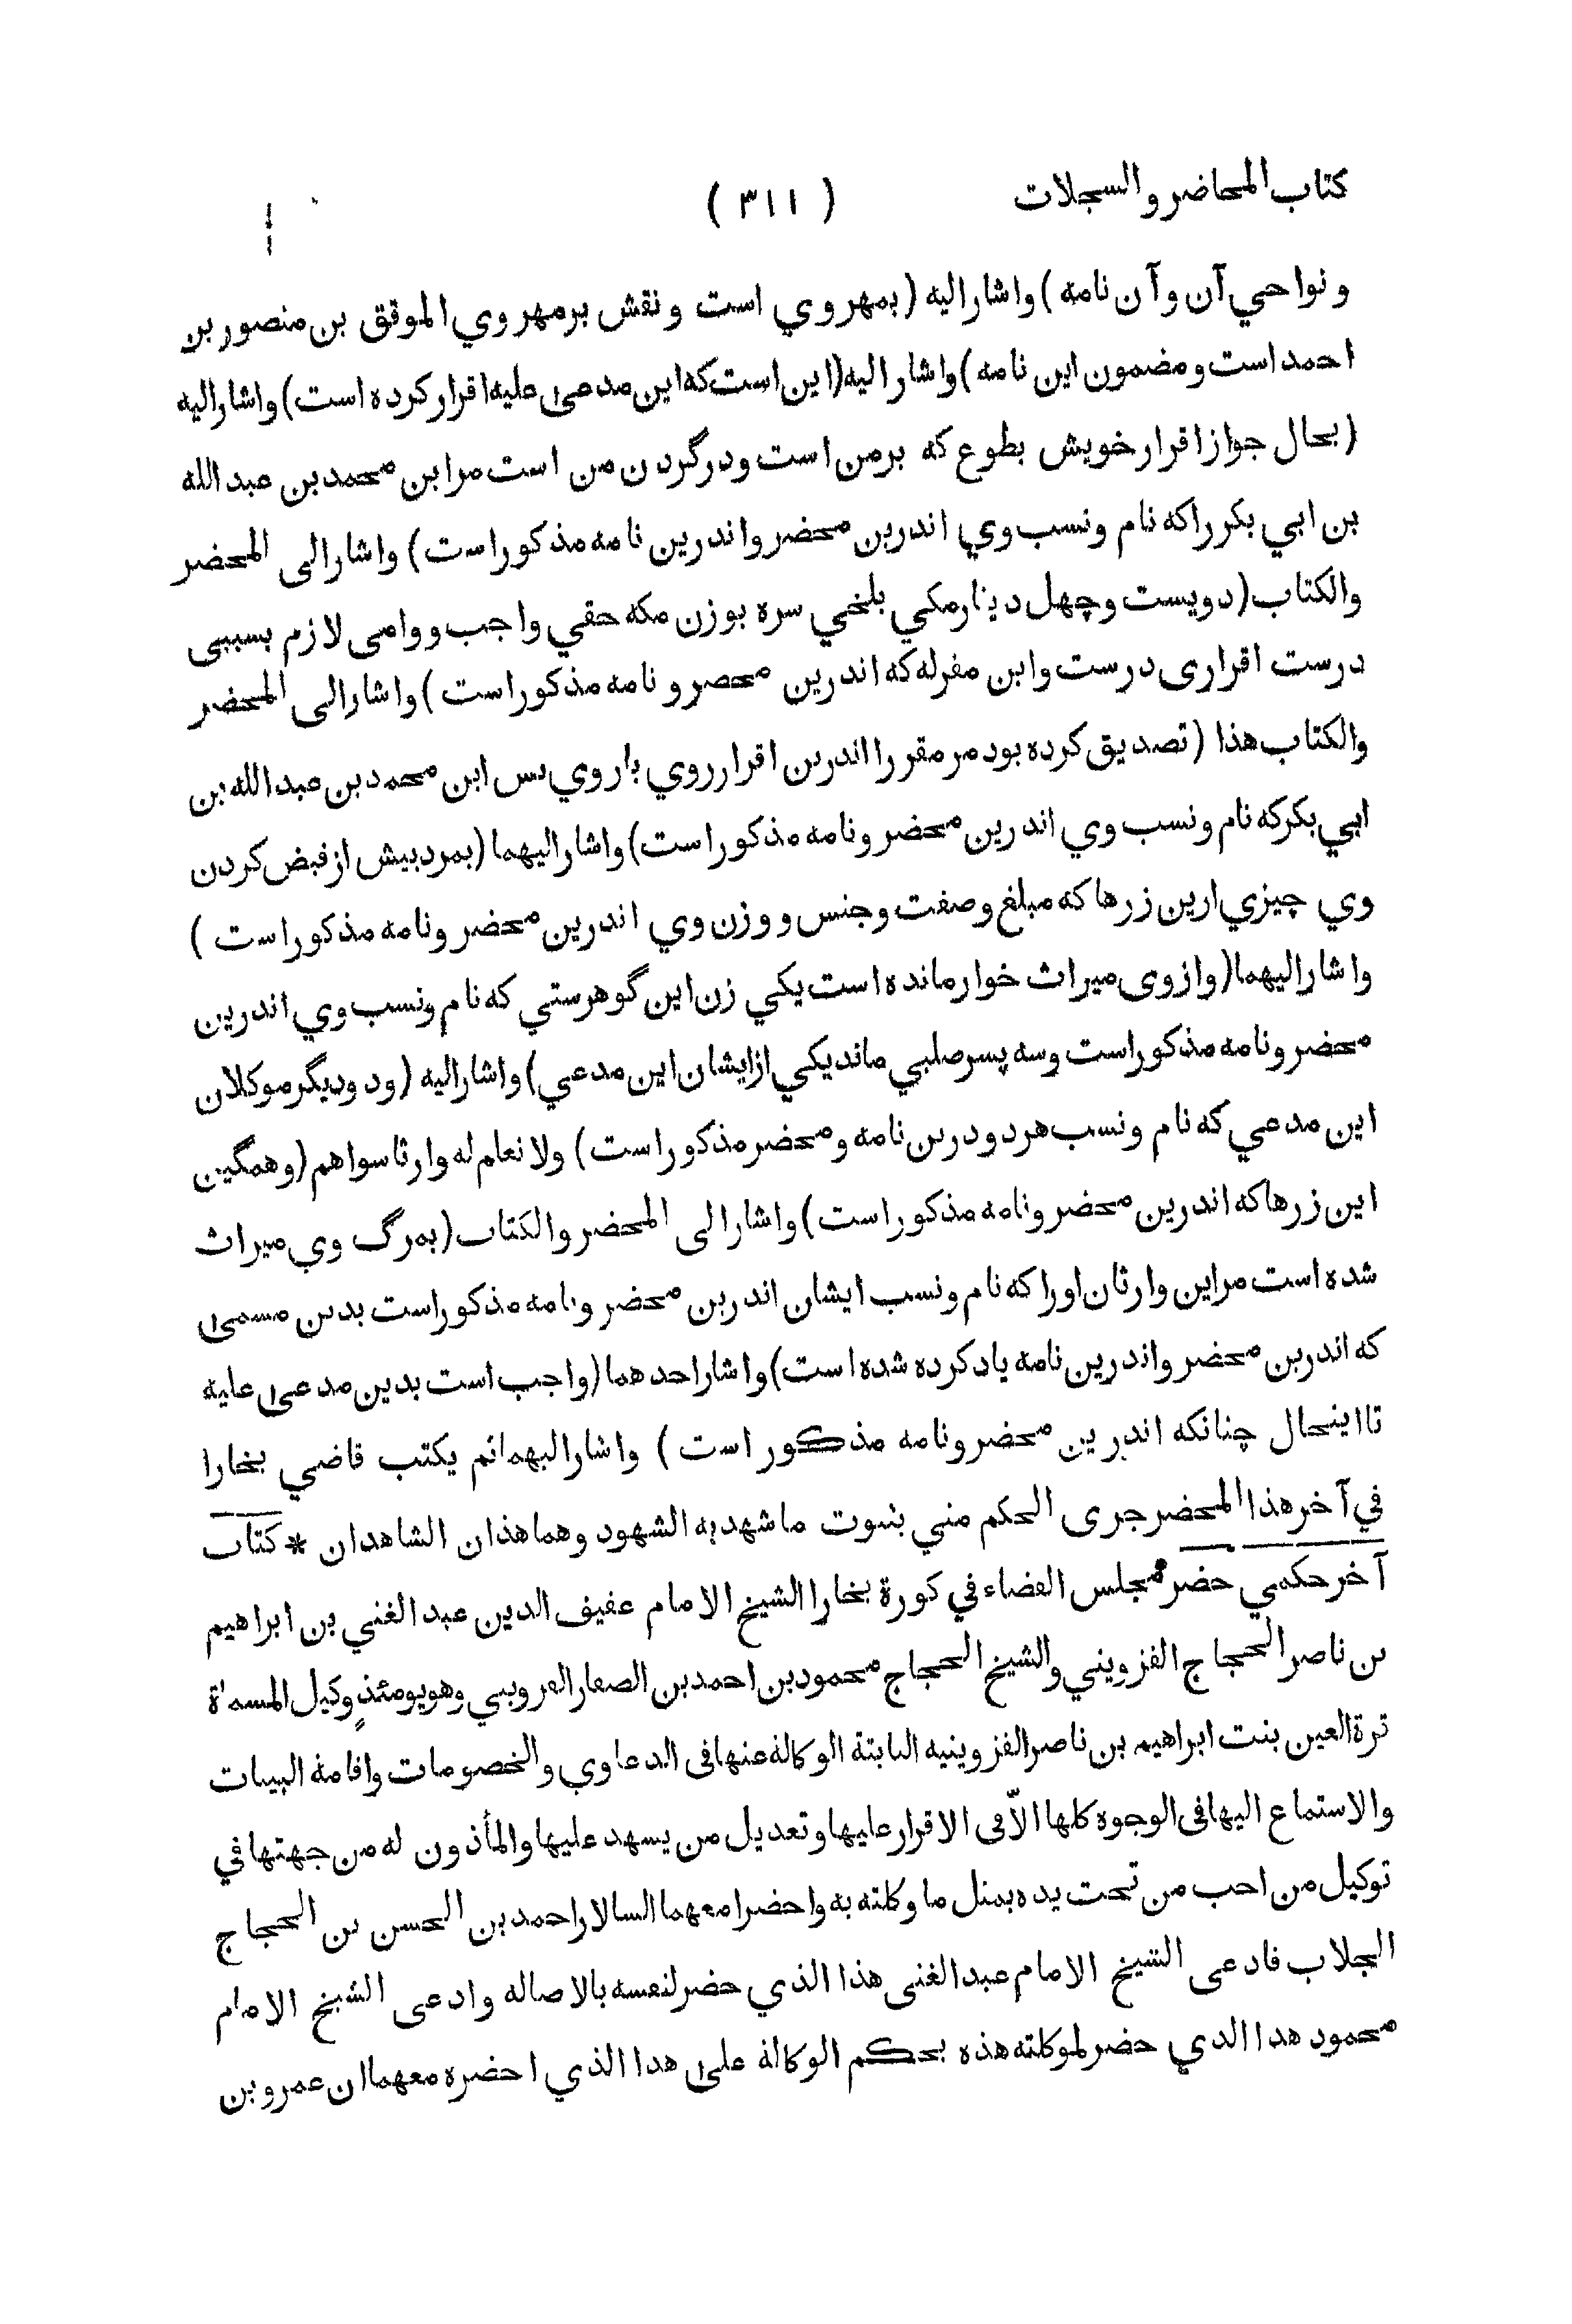 كتاب المحاضر والسجلات ( ٣١١ )
ونواحي آن وآن نامه ) واشار اليه ( بمهر وي است ونقش بر مهر وي الموفق بن منصور بن
احمد است ومضمون اين نامه ) واشار اليه ( اين است كه اين مدعى عليه اقرار كرده است ) واشار اليه
( بحال جواز اقرار خويش بطوع كه بر من است ودر گردن من است مر ابن محمد بن عبد الله
بن ابي بكر را كه نام ونسب وي اندرين محضر واندرين نامه مذكور است ) واشار الى المحضر
والكتاب ( دويست وچهل دينار مكي بلخي سره بوزن مكه حقي واجب ووامى لازم بسببى
درست اقرارى درست وابن مقرله كه اندرين محضر و نامه مذكور است ) واشار الى المحضر
والكتاب هذا ( تصديق كرده بود مر مقر را اندرين اقرار روي باروي پس ابن محمد بن عبد الله بن
ابي بكر كه نام ونسب وي اندرين محضر ونامه مذكور است ) واشار اليهما ( بمرد بيش از قبض كردن
وي چيزي ازين زرها كه مبلغ وصفت وجنس ووزن وي اندرين محضر ونامه مذكور است )
واشار اليهما ( واز وى ميراث خوار مانده است يكي زن اين گوهرستي كه نام ونسب وي اندرين
محضر ونامه مذكور است وسه پسر صلبي ماند يكي از ايشان اين مدعي ) واشار اليه ( ودو ديگر موكلان
اين مدعي كه نام ونسب هر دو درين نامه ومحضر مذكور است ) ولا نعلم له وارثا سواهم ( وهمگين
اين زرها كه اندرين محضر ونامه مذكور است ) واشار الى المحضر والكتاب ( بمرگ وي ميراث
شده است مر اين وارثان اورا كه نام ونسب ايشان اندرين محضر ونامه مذكور است بدين مسمى
كه اندرين محضر واندرين نامه ياد كرده شده است ) واشار احدهما ( واجب است بدين مدعى عليه
تا اينحال چنانكه اندرين محضر ونامه مذكور است ) واشار اليهما ثم يكتب قاضي بخارا
في آخر هذا المحضر جرى الحكم مني بثبوت ما شهد به الشهود وهما هذان الشاهدان * كتاب
آخر حكمي حضر مجلس القضاء في كورة بخارا الشيخ الامام عفيف الدين عبد الغني بن ابراهيم
بن ناصر الحجاج القزويني والشيخ الحجاج محمود بن احمد بن الصفار القزويني وهو يومئذٍ وكيل المسماة
قرة العين بنت ابراهيم بن ناصر القزوينيه الثابتة الوكالة عنها فى الدعاوي والخصومات واقامة البينات
والاستماع اليها فى الوجوه كلها الاّ فى الاقرار عليها وتعديل من يشهد عليها والمأذون له من جهتها في
توكيل من احب من تحت يده بمثل ما وكلته به واحضرا معهما السالار احمد بن الحسن بن الحجاج
الجلاب فادعى الشيخ الامام عبد الغنى هذا الذي حضر لنفسه بالاصاله وادعى الشيخ الامام
محمود هذا الذي حضر لموكلته هذه بحكم الوكالة على هذا الذي احضره معهما ان عمرو بن